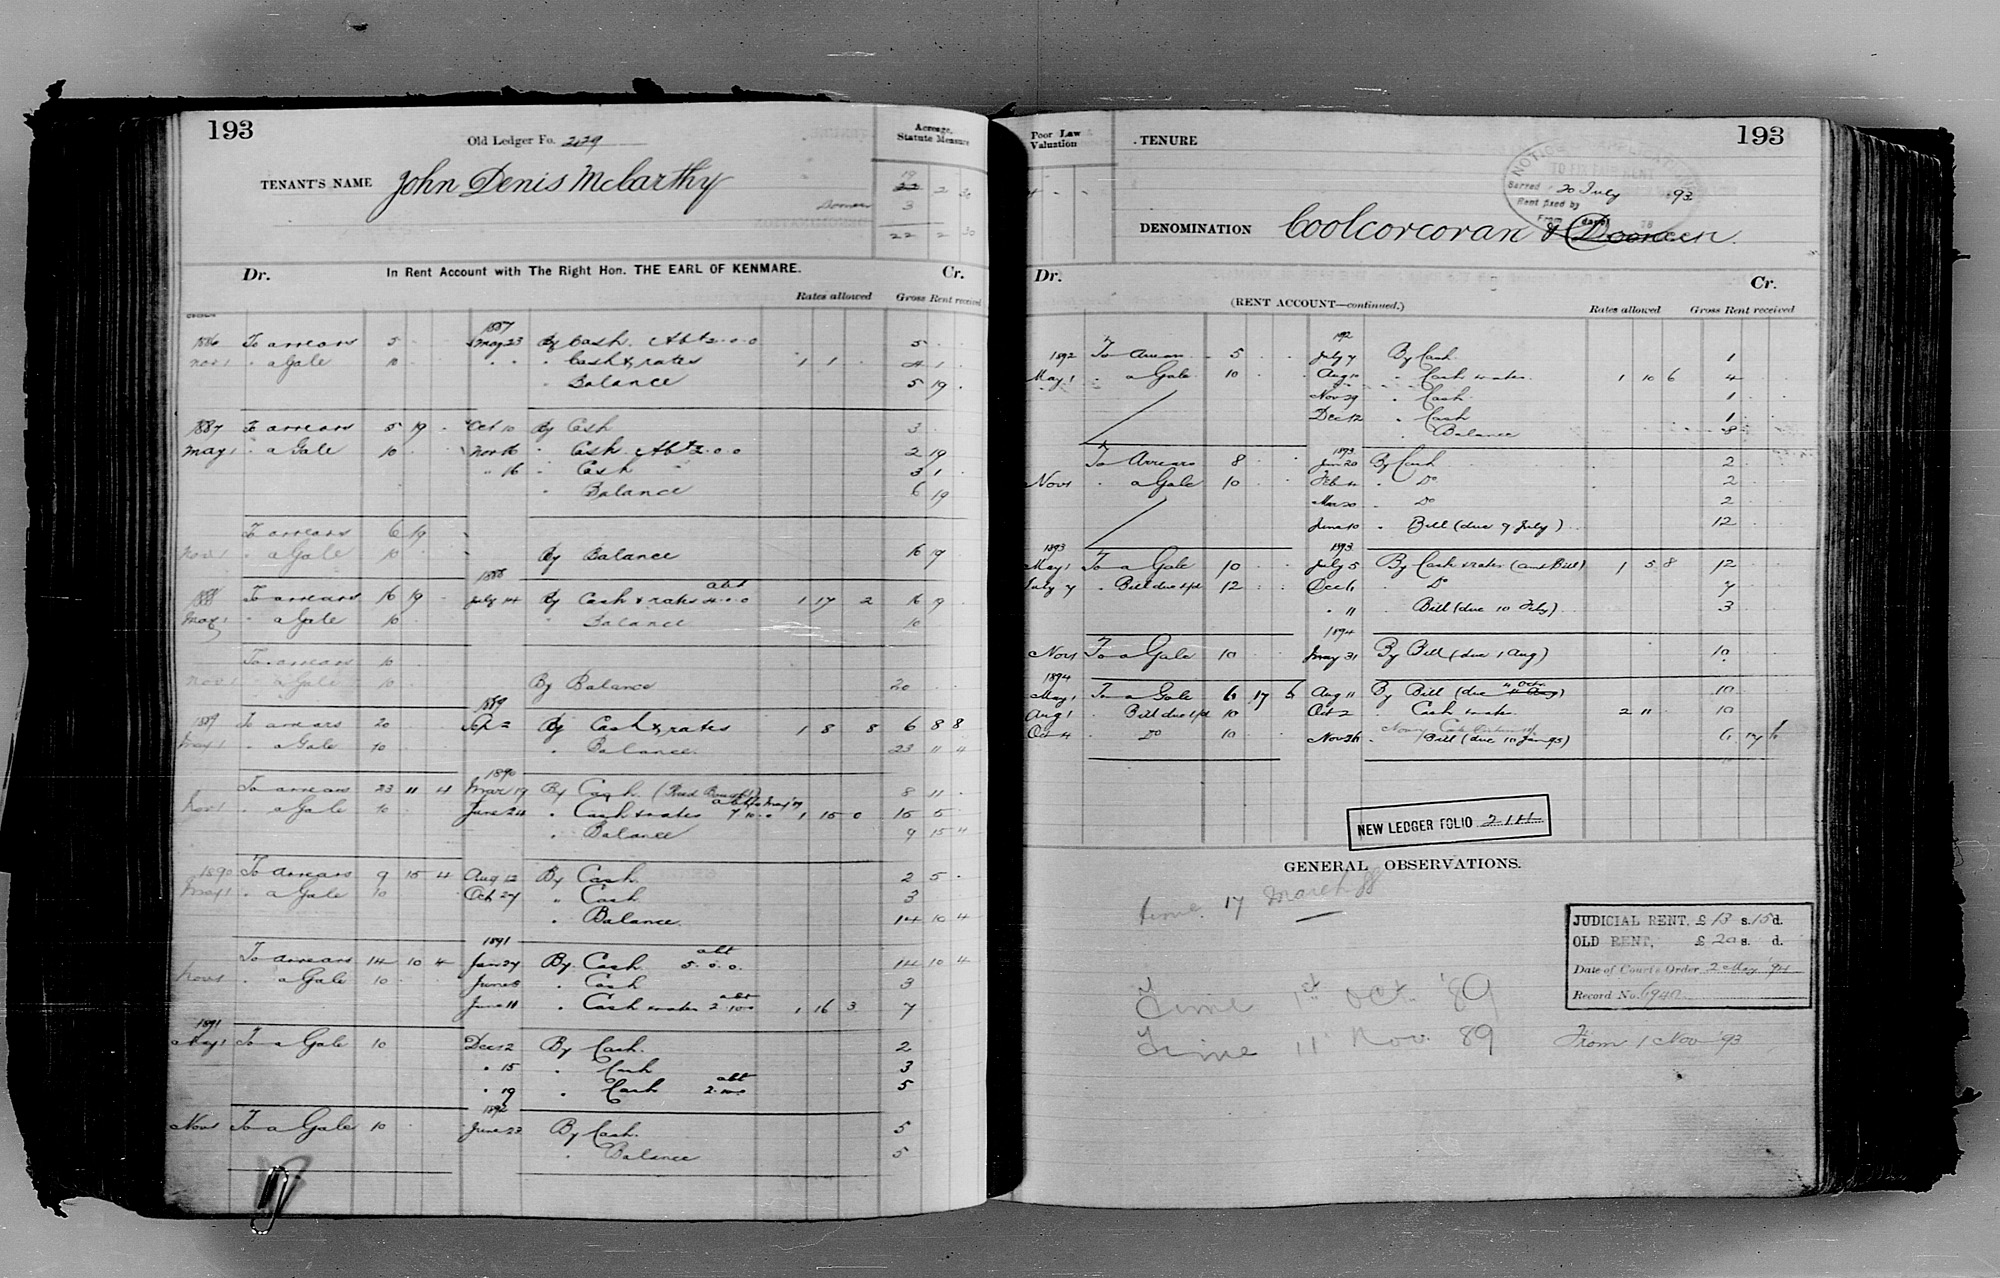 193
Old Ledger Fo. 229
Acreage, Statute Measure
TENANT'S NAME John Denis McCarthy
19
22 2 30
3
22 2 30
Dr. In Rent Account with The Right Hon. THE EARL OF KENMARE. Cr.
Rates allowed Gross Rent received
1887
1886 To arrears 5 May 23 By Cash. Abt 2.0.0 5
Nov 1 " a Gale 10 " " Cash & rates 1 1 4 1
" Balance 5 19
1887 To arrears 5 19 Oct 10 By Cash 3
May 1 " a Gale 10 Nov 16 " Cash Abt 2.0.0 2 19
" 16 " Cash 3 1
" Balance 6 19
To arrears 6 19
Nov 1 " a Gale 10 By Balance 16 19
1888
1888 To arrears 16 19 July 14 By Cash & rates abt 4.0.0 1 17 2 16 19
May 1 " a Gale 10 " Balance 10
To arrears 10
Nov 1 " a Gale 10 By Balance 20
1889
1889 To arrears 20 Sep 2 By Cash & rates 1 8 8 6 8 8
May 1 " a Gale 10 " Balance 23 11 4
1890
To arrears 23 11 4 Mar 19 By Cash 8 11
Nov 1 " a Gale 10 June 24 " Cash & rates 7 10.0 1 15 0 15 5
" Balance 9 15 4
1890 To arrears 9 15 4 Aug 12 By Cash 2 5
May 1 " a Gale 10 Oct 27 " Cash 3
" Balance 14 10 4
1891
To arrears 14 10 4 Jan 27 By Cash abt 5.0.0 14 10 4
Nov 1 " a Gale 10 June 8 " Cash 3
June 11 " Cash & rates abt 2.10.0 1 16 3 7
1891
May 1 To a Gale 10 Dec 12 By Cash. 2
" 15 " Cash 3
" 19 " Cash abt 2.10.0 5
1892
Nov 1 To a Gale 10 June 23 By Cash. 5
" Balance 5
Poor Law Valuation
TENURE
193
NOTICE APPLICATION
TO FIX FAIR RENT
Served 20 July 93
Rent fixed by
From (date)
DENOMINATION Coolcorcoran & Dooneen
Dr. Cr.
(RENT ACCOUNT—continued.)
Rates allowed Gross Rent received
1892 To Arrears 5 July 7 By Cash 1
May 1 " a Gale 10 Aug " Cash & rates 1 10 6 4
Nov 29 " Cash 1
Dec 12 " Cash 1
" Balance 8
1893
To Arrears 8 Jan 20 By Cash 2
Nov 1 " a Gale 10 Feb 4 " Do 2
Mar 20 " Do 2
June 10 " Bill (due 7 July) 12
1893 1893
May 1 To a Gale 10 July 5 By Cash & rates (and Bill) 1 5 8 12
July 7 " Bill due & pd 12 Dec 6 " Do 7
" 11 Bill (due 10 Feby) 3
1894
Nov 1 To a Gale 10 May 31 By Bill (due 1 Aug) 10
1894
May 1 To a Gale 6 17 6 Aug 11 By Bill (due 4 Oct) 10
Aug 1 " Bill due & pd 10 Oct 2 " Cash & rates 2 11 10
Oct 4 " Do 10 Nov 26 " Bill (due 10 Jan 95) 6 17 6
NEW LEDGER FOLIO 214
GENERAL OBSERVATIONS.
time 17 March 88
Time 1st Oct. '89
Time 11 Nov. 89
JUDICIAL RENT, £ 13 s. 15 d.
OLD RENT, £ 20 s. d.
Date of Court's Order 2 May '94
Record No. 6940
From 1 Nov '93